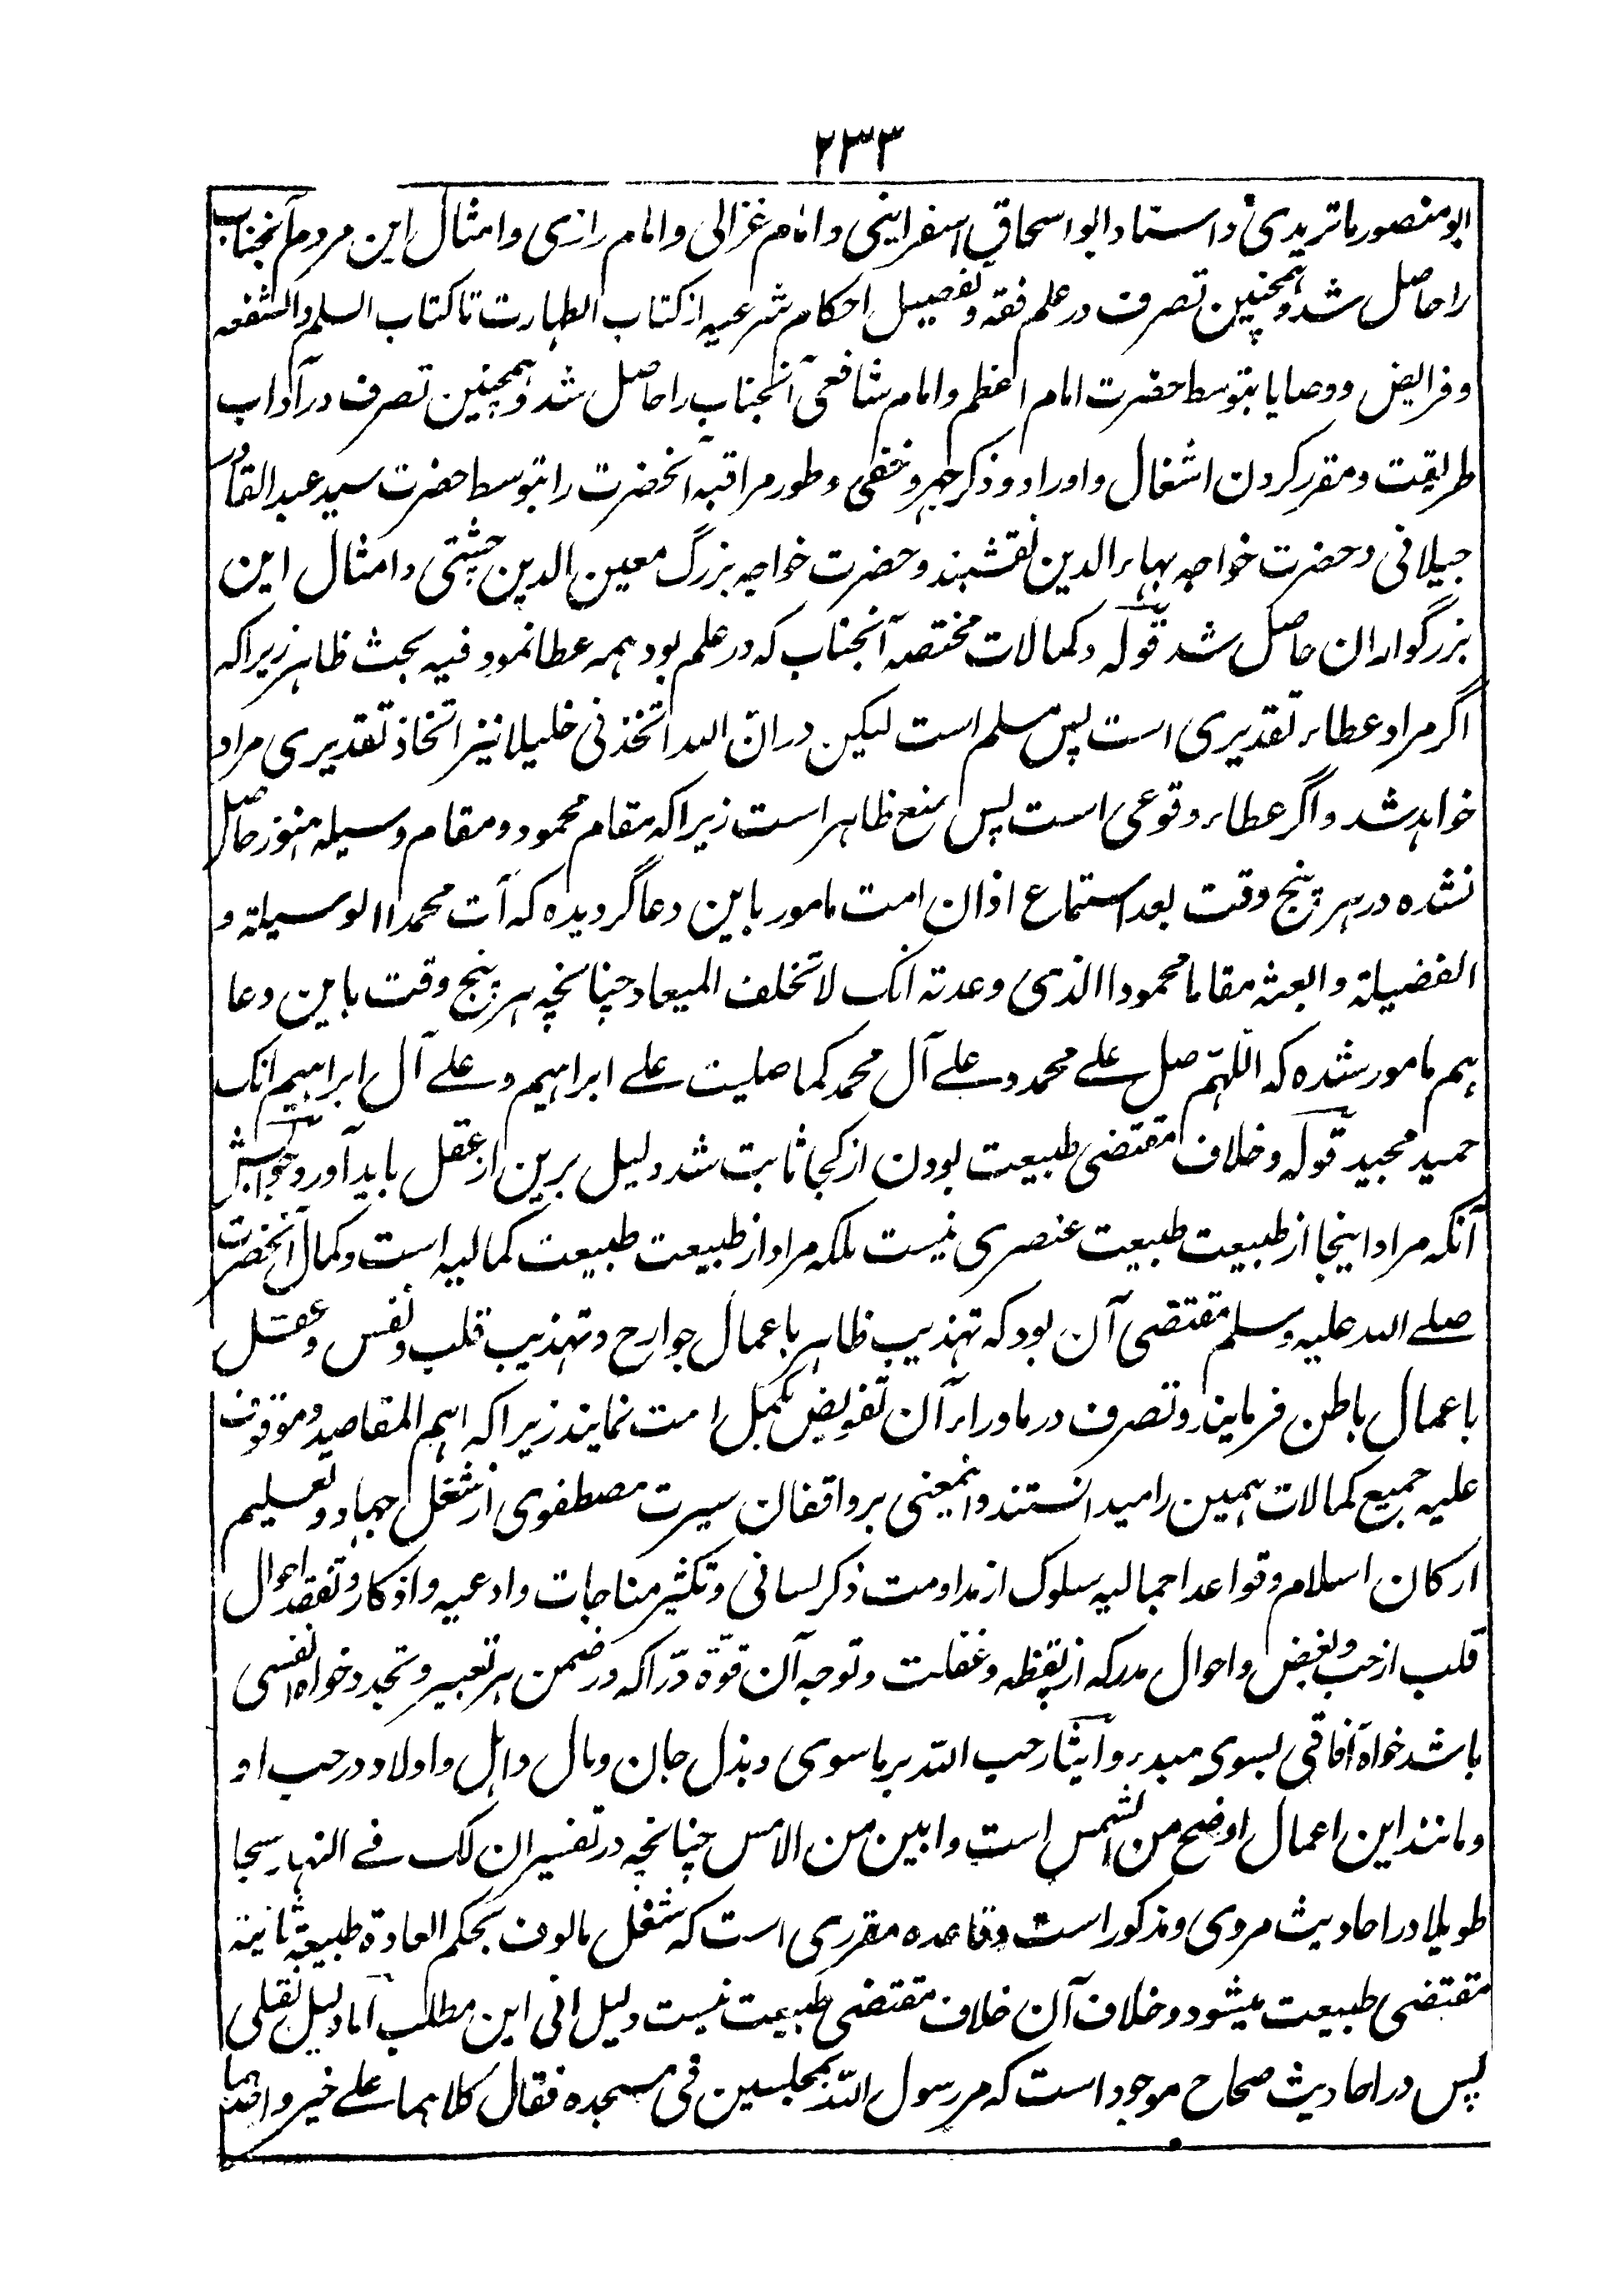 ۲۳۳
ابو منصور ماتریدی و استاد ابو اسحاق اسفراینی و امام غزالی و امام رازی و امثال این مردم آنجناب
را حاصل شد و همچنین تصرف در علم فقه و تفصیل احکام شرعیه از کتاب الطهارت تا کتاب السلم و الشفعه
و فرایض و وصایا بتوسط حضرت امام اعظم و امام شافعی آنجناب را حاصل شد و همچنین تصرف در آداب
طریقت و مقرر کردن اشغال و اوراد و ذکر جهر و خفی و طور مراقبه آنحضرت را بتوسط حضرت سید عبد القادر
جیلانی و حضرت خواجه بهاء الدین نقشبند و حضرت خواجه بزرگ معین الدین چشتی و امثال این
بزرگواران حاصل شد قوله و کمالات مختصه آنجناب که در علم بود همه عطا نمود فیه بحث ظاهر زیرا که
اگر مراد عطاء تقدیری است پس مسلم است لیکن در ان الله اتخذنی خلیلا نیز اتخاذ تقدیری مراد
خواهد شد و اگر عطاء وقوعی است پس منع ظاهر است زیرا که مقام محمود و مقام وسیله هنوز حاصل
نشده در هر پنج وقت بعد استماع اذان امت مامور باین دعا گردیده که آت محمدا الوسیلة و
الفضیلة و ابعثه مقاما محمودا الذی وعدته انک لا تخلف المیعاد چنانچه هر پنج وقت باین دعا
هم مامور شده که اللّهمّ صل علے محمد و علے آل محمد کما صلیت علے ابراهیم و علے آل ابراهیم انک
حمید مجید قوله و خلاف مقتضی طبیعت بودن از کجا ثابت شد دلیل برین از عقل باید آورد جوابش
آنکه مراد اینجا از طبیعت طبیعت عنصری نیست بلکه مراد از طبیعت طبیعت کمالیه است و کمال آنحضرت
صلے الله علیه وسلم مقتضی آن بود که تهذیب ظاهر باعمال جوارح و تهذیب قلب و نفس و عقل
باعمال باطن فرمایند و تصرف در ماوراء آن تفویض بکمل امت نمایند زیرا که اهم المقاصد و موقوف
علیه جمیع کمالات همین را میدانستند و اینمعنی بر واقفان سیرت مصطفوی از شغل جهاد و تعلیم
ارکان اسلام و قواعد اجمالیه سلوک از مداومت ذکر لسانی و تکثیر مناجات و ادعیه و اذکار و تفقد احوال
قلب از حب و بغض و احوال مدرکه از یقظه و غفلت و توجه آن قوّة درّاکه در ضمن هر تعبیر و تجدد خواه انفسی
باشد خواه آفاقی بسوی مبدء و ایثار حب الله بر ماسوی و بذل جان و مال و اهل و اولاد در حب او
و مانند این اعمال اوضح من الشمس است و ابین من الامس چنانچه در تفسیر ان لک فے النهار سبحا
طویلا در احادیث مروی و مذکور است و قاعده مقرری است که شغل مالوف بحکم العادة طبیعة ثانیة
مقتضی طبیعت میشود و خلاف آن خلاف مقتضی طبیعت نیست دلیل انی این مطلب اما دلیل نقلی
پس در احادیث صحاح موجود است که مر رسول الله بمجلسین فی مسجده فقال کلاهما علے خیر و احدهما